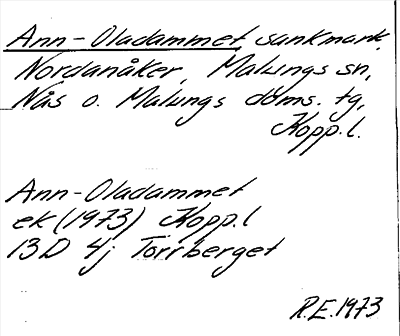 Ann-Oladammet, sankmark,
Nordanåker, Malungs sn,
Nås o. Malungs doms. tg,
Kopp. l.
Ann-Oladammet
ek (1973) Kopp. l
13D 4j Törrberget
R.E. 1973